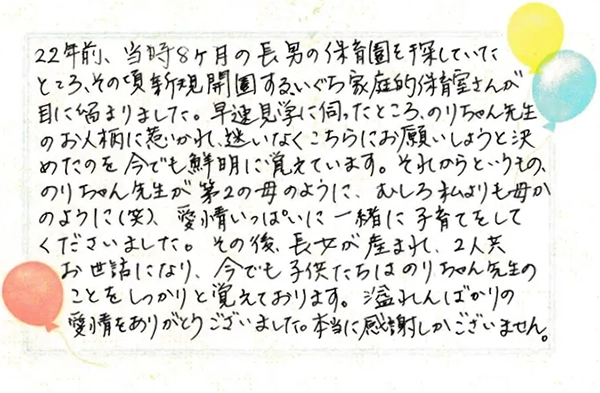 22年前、当時8ヶ月の長男の保育園を探していた
ところ、その頃新規開園するいぐち家庭的保育室さんが
目に留まりました。早速見学に伺ったところ、のりちゃん先生
のお人柄に惹かれ、迷いなくこちらにお願いしようと決
めたのを今でも鮮明に覚えています。それからというもの、
のりちゃん先生が第2の母のように、むしろ私よりも母か
のように(笑)、愛情いっぱいに一緒に子育てをして
くださいました。その後、長女が産まれ、2人共
お世話になり、今でも子供たちはのりちゃん先生の
ことをしっかりと覚えております。溢れんばかりの
愛情をありがとうございました。本当に感謝しかございません。